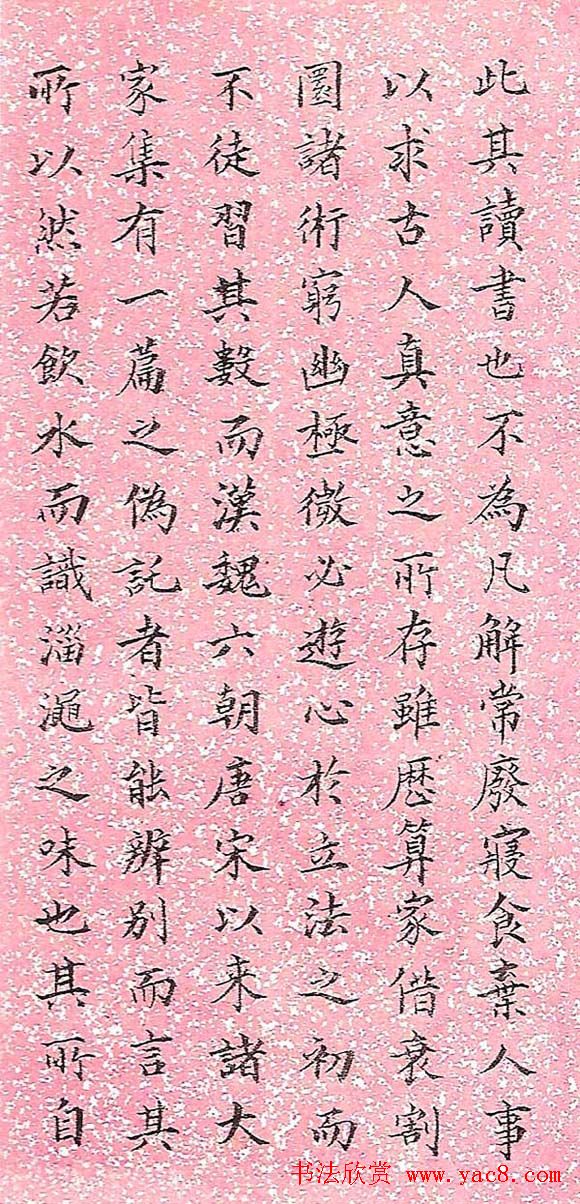 此其讀書也不為凡解常廢寢食棄人事
以求古人真意之所存雖歷算家借衰割
圜諸術窮幽極微必遊心於立法之初而
不徒習其數而漢魏六朝唐宋以来諸大
家集有一篇之偽託者皆能辨别而言其
所以然若飲水而識淄澠之味也其所自
书法欣赏 www.yac8.com